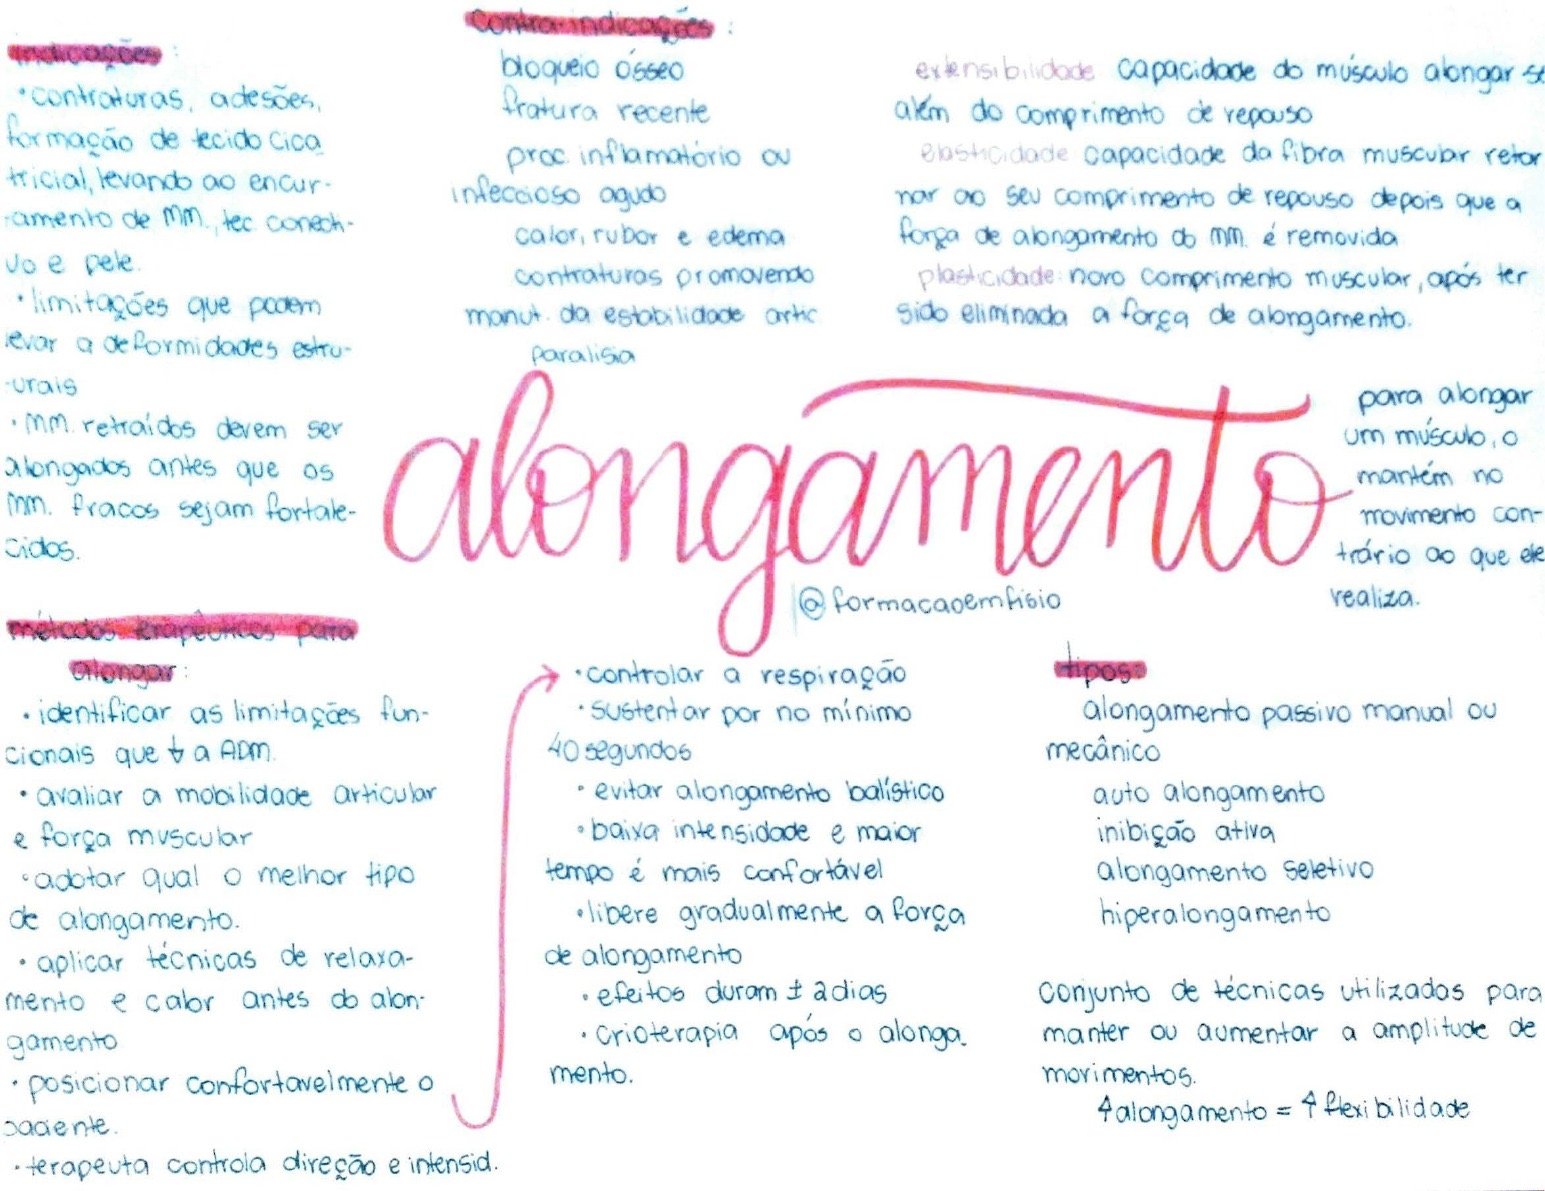 indicações:
• contraturas, adesões,
formação de tecido cica
tricial, levando ao encur-
tamento de MM., tec conecti-
vo e pele.
• limitações que podem
levar a deformidades estru-
turais
• MM. retraídos devem ser
alongados antes que os
MM. fracos sejam fortale-
cidos.
contra-indicações:
bloqueio ósseo
fratura recente
proc. inflamatório ou
infeccioso agudo
calor, rubor e edema
contraturas promovendo
manut. da estabilidade artic
paralisia
extensibilidade capacidade do músculo alongar se
além do comprimento de repouso
elasticidade capacidade da fibra muscular retor
nar ao seu comprimento de repouso depois que a
força de alongamento do MM. é removida
plasticidade: novo comprimento muscular, após ter
sido eliminada a força de alongamento.
alongamento
@formacaoemfisio
para alongar
um músculo, o
mantém no
movimento con-
trário ao que ele
realiza.
métodos terapêuticos para
alongar:
• identificar as limitações fun-
cionais que ↓ a ADM.
• avaliar a mobilidade articular
e força muscular
• adotar qual o melhor tipo
de alongamento.
• aplicar técnicas de relaxa-
mento e calor antes do alon-
gamento
• posicionar confortavelmente o
paciente.
• terapeuta controla direção e intensid.
• controlar a respiração
• sustentar por no mínimo
40 segundos
• evitar alongamento balístico
• baixa intensidade e maior
tempo é mais confortável
• libere gradualmente a força
de alongamento
• efeitos duram ± 2 dias
• crioterapia após o alonga-
mento.
tipos:
alongamento passivo manual ou
mecânico
auto alongamento
inibição ativa
alongamento seletivo
hiperalongamento
conjunto de técnicas utilizadas para
manter ou aumentar a amplitude de
movimentos.
↑ alongamento = ↑ flexibilidade